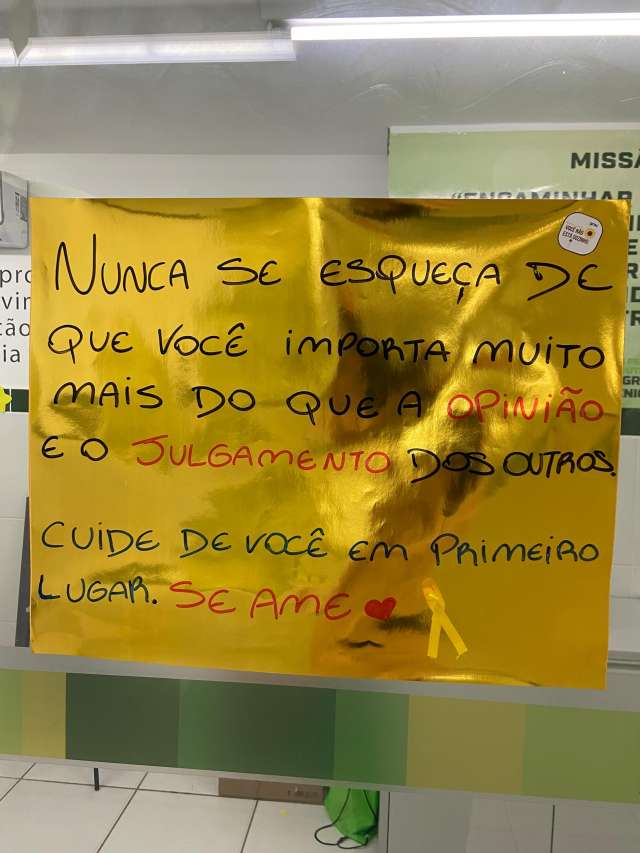 MISSÃ
"ENCAMINHAR
VOCÊ NÃO
ESTÁ SOZINHO
NUNCA SE ESQUEÇA DE
QUE VOCÊ IMPORTA MUITO
MAIS DO QUE A OPINIÃO
E O JULGAMENTO DOS OUTROS.
CUIDE DE VOCÊ EM PRIMEIRO
LUGAR. SE AME
pro
vir
ção
ia